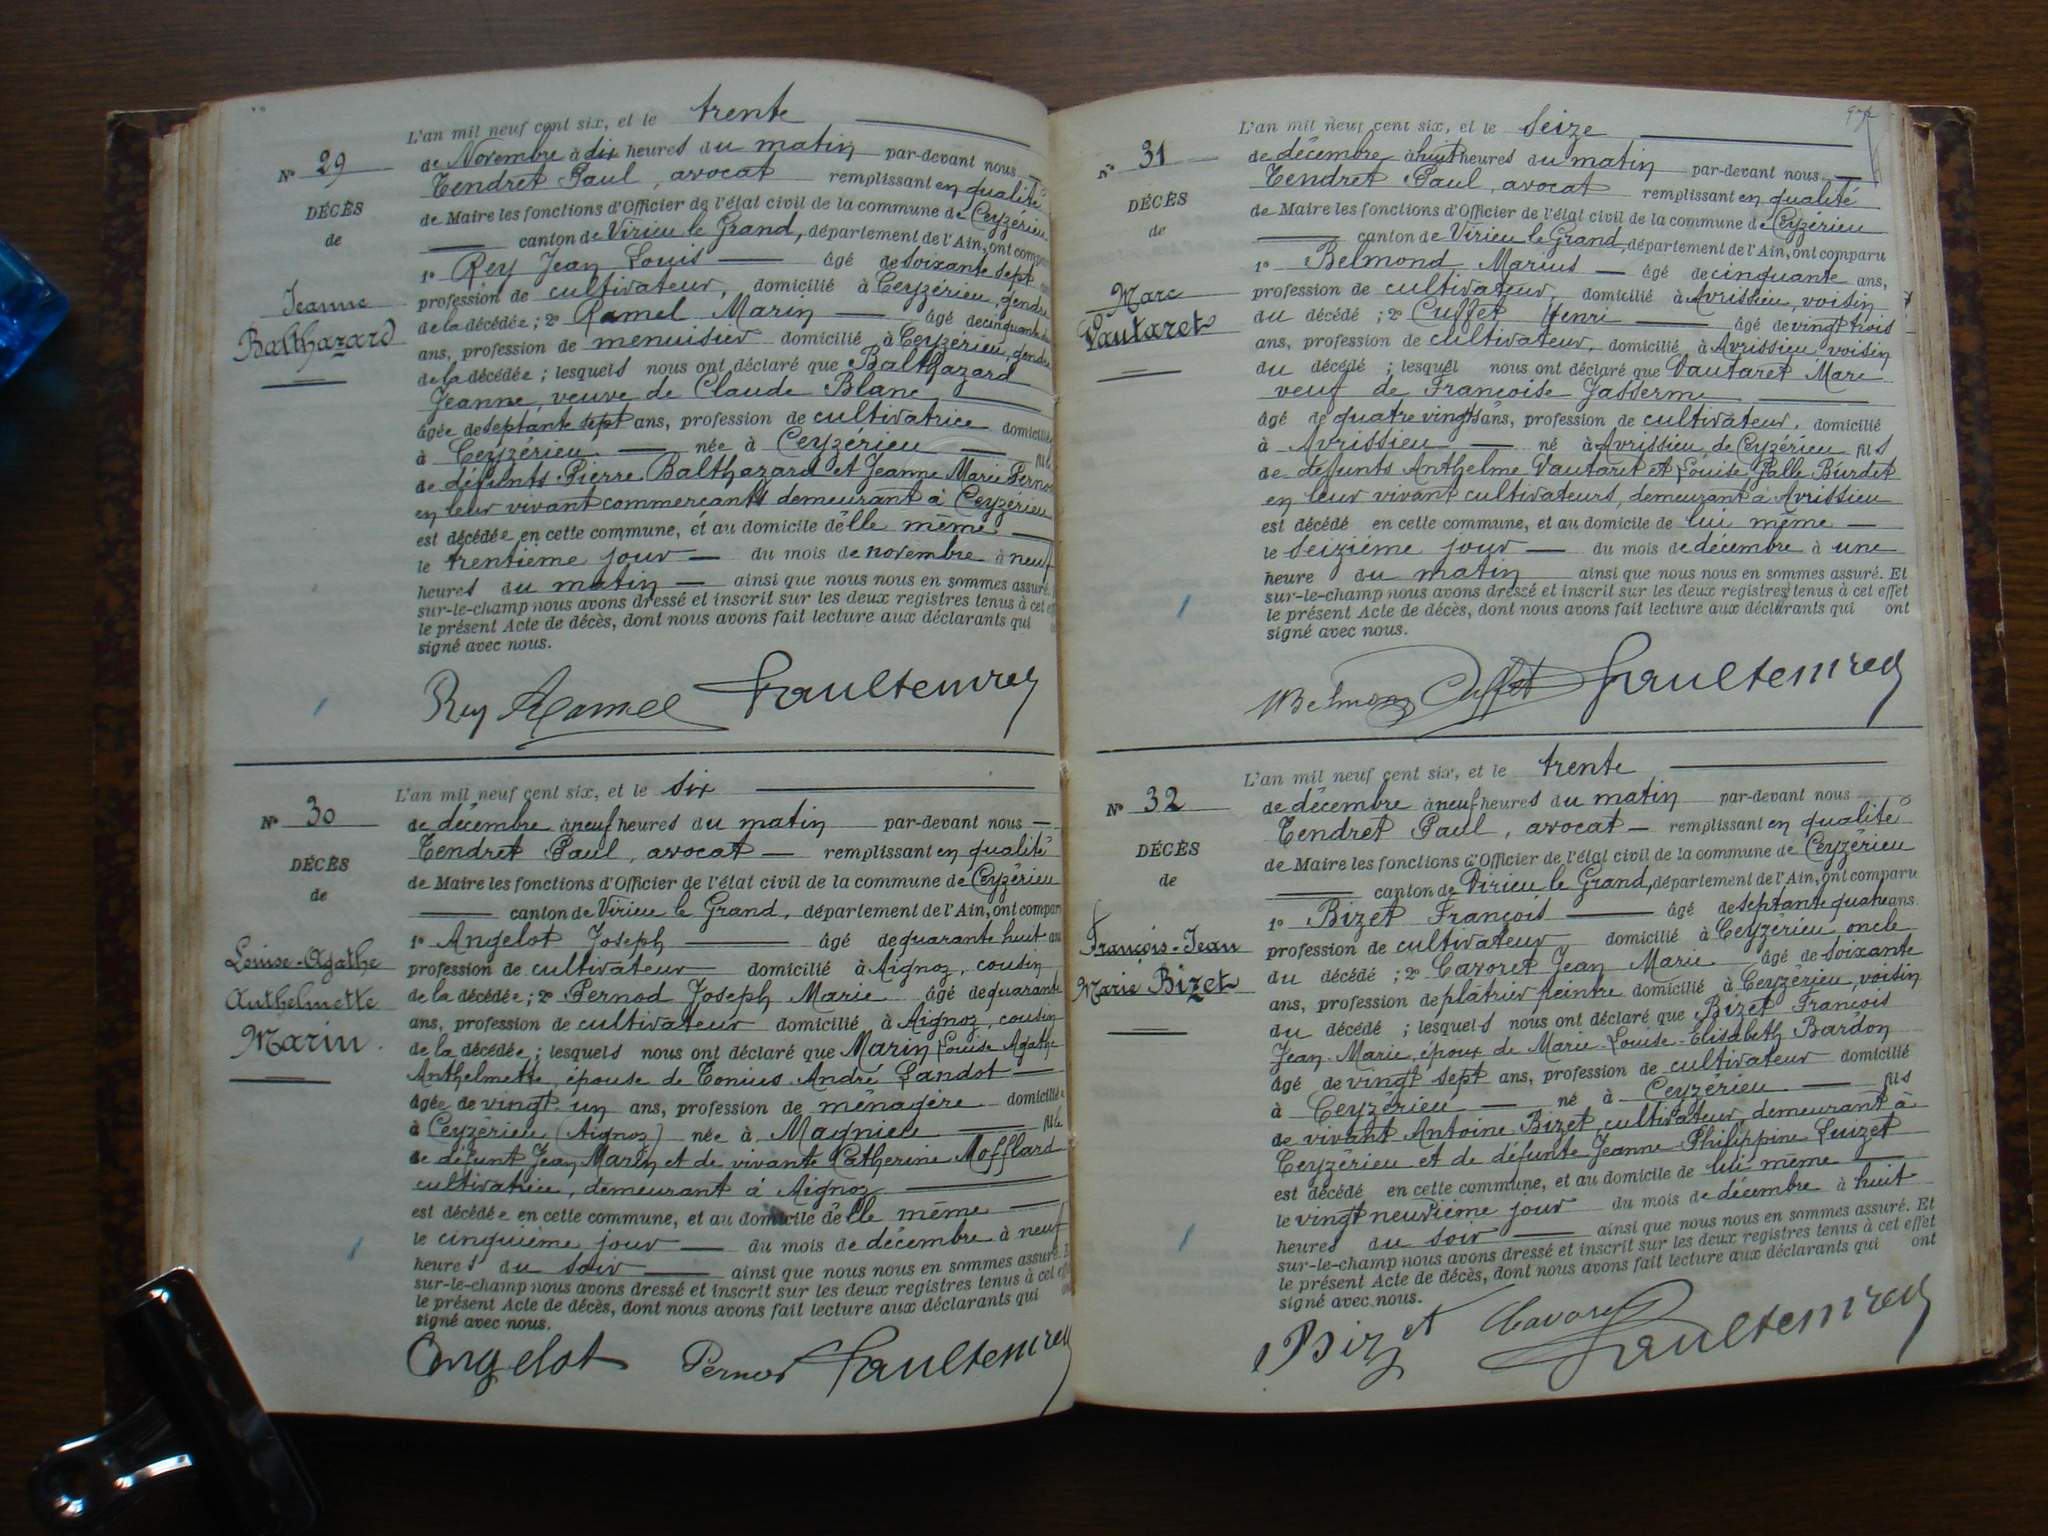 L'an mil neuf cent six, et le trente
N° 29
de Novembre à dix heures du matin par-devant nous
Tendret Paul, avocat remplissant en qualité
DÉCÈS
de Maire les fonctions d'Officier de l'état civil de la commune de Ceyzérieu
de
canton de Virieu le Grand, département de l'Ain, ont comparu
1° Rey Jean Louis âgé de soixante sept
Jeanne
profession de cultivateur, domicilié à Ceyzérieu, gendre
Balthazard
de la décédée ; 2° Ramel Marin âgé de cinquante
ans, profession de menuisier domicilié à Ceyzérieu, gendre
de la décédée ; lesquels nous ont déclaré que Balthazard
Jeanne, veuve de Claude Blanc
âgée de septante sept ans, profession de cultivatrice domiciliée
à Ceyzérieu née à Ceyzérieu fille
de défunts Pierre Balthazard et Jeanne Marie Pernod
en leur vivant commerçants demeurant à Ceyzérieu
est décédée en cette commune, et au domicile d'elle même
le trentième jour du mois de novembre à neuf
heures du matin ainsi que nous nous en sommes assuré.
sur-le-champ nous avons dressé et inscrit sur les deux registres tenus à cet
le présent Acte de décès, dont nous avons fait lecture aux déclarants qui
signé avec nous.
Rey Ramel
L'an mil neuf cent six, et le six
N° 30
de décembre à neuf heures du matin par-devant nous
Tendret Paul, avocat remplissant en qualité
DÉCÈS
de Maire les fonctions d'Officier de l'état civil de la commune de Ceyzérieu
de
canton de Virieu le Grand, département de l'Ain, ont comparu
1° Angelot Joseph âgé de quarante huit ans
Louise-Agathe
profession de cultivateur domicilié à Aignoz, cousin
Anthelmette
de la décédée ; 2° Pernod Joseph Marie âgé de quarante
Marin.
ans, profession de cultivateur domicilié à Aignoz, cousin
de la décédée ; lesquels nous ont déclaré que Marin Louise Agathe
Anthelmette, épouse de Tonius André Landot
âgée de vingt-un ans, profession de ménagère domiciliée
à Ceyzérieu (Aignoz) née à Magnieu fille
de défunt Jean Marin et de vivante Catherine Mofflard
cultivatrice, demeurant à Aignoz
est décédée en cette commune, et au domicile d'elle même
le cinquième jour du mois de décembre à neuf
heures du soir ainsi que nous nous en sommes assuré.
sur-le-champ nous avons dressé et inscrit sur les deux registres tenus à cet
le présent Acte de décès, dont nous avons fait lecture aux déclarants qui
signé avec nous.
Angelot Pernod
L'an mil neuf cent six, et le seize
N° 31
de décembre à huit heures du matin par-devant nous
Tendret Paul, avocat remplissant en qualité
DÉCÈS
de Maire les fonctions d'Officier de l'état civil de la commune de Ceyzérieu
de
canton de Virieu le Grand, département de l'Ain, ont comparu
1° Belmond Marius âgé de cinquante ans,
Marc
profession de cultivateur, domicilié à Avrissieu, voisin
Vautaret
du décédé ; 2° Cuffet Henri âgé de vingt trois
ans, profession de cultivateur, domicilié à Avrissieu, voisin
du décédé ; lesquel nous ont déclaré que Vautaret Marc
veuf de Françoise Jasserme
âgé de quatre vingts ans, profession de cultivateur, domicilié
à Avrissieu né à Avrissieu, de Ceyzérieu fils
de défunts Anthelme Vautaret et Louise Falle-Burdet
en leur vivant cultivateurs, demeurant à Avrissieu
est décédé en cette commune, et au domicile de lui même
le seizième jour du mois de décembre à une
heure du matin ainsi que nous nous en sommes assuré. Et
sur-le-champ nous avons dressé et inscrit sur les deux registres tenus à cet effet
le présent Acte de décès, dont nous avons fait lecture aux déclarants qui ont
signé avec nous.
MBelmond Cuffet
L'an mil neuf cent six, et le trente
N° 32
de décembre à neuf heures du matin par-devant nous
Tendret Paul, avocat remplissant en qualité
DÉCÈS
de Maire les fonctions d'Officier de l'état civil de la commune de Ceyzérieu
de
canton de Virieu le Grand, département de l'Ain, ont comparu
1° Bizet François âgé de septante quatre ans.
François-Jean
profession de cultivateur domicilié à Ceyzérieu oncle
Marie Bizet
du décédé ; 2° Cavoret Jean Marie âgé de soixante
ans, profession de plâtrier peintre domicilié à Ceyzérieu, voisin
du décédé ; lesquels nous ont déclaré que Bizet François
Jean-Marie, époux de Marie-Louise-Elisabeth Bardon
âgé de vingt sept ans, profession de cultivateur domicilié
à Ceyzérieu né à Ceyzérieu fils
de vivant Antoine Bizet, cultivateur, demeurant à
Ceyzérieu et de défunte Jeanne-Philippine Luizet
est décédé en cette commune, et au domicile de lui-même
le vingt neuvième jour du mois de décembre à huit
heures du soir ainsi que nous nous en sommes assuré. Et
sur-le-champ nous avons dressé et inscrit sur les deux registres tenus à cet effet
le présent Acte de décès, dont nous avons fait lecture aux déclarants qui ont
signé avec nous.
Bizet Cavoret